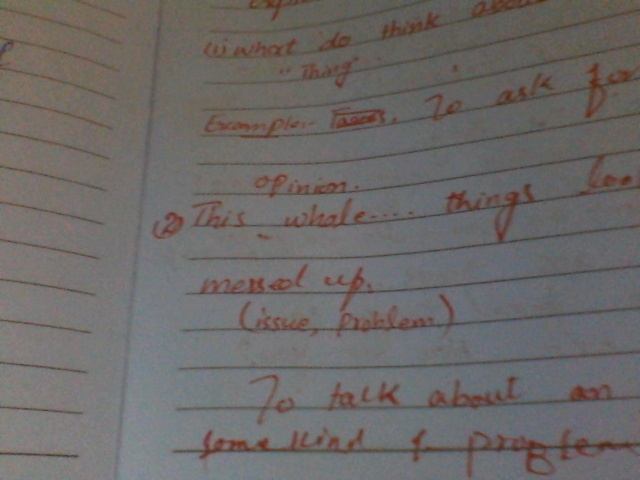 (i) what do think about
"Thing"
Example:- To ask for
opinion.
(2) This whole.... things look
messed up.
(issue, problem)
To talk about an
some kind of problem